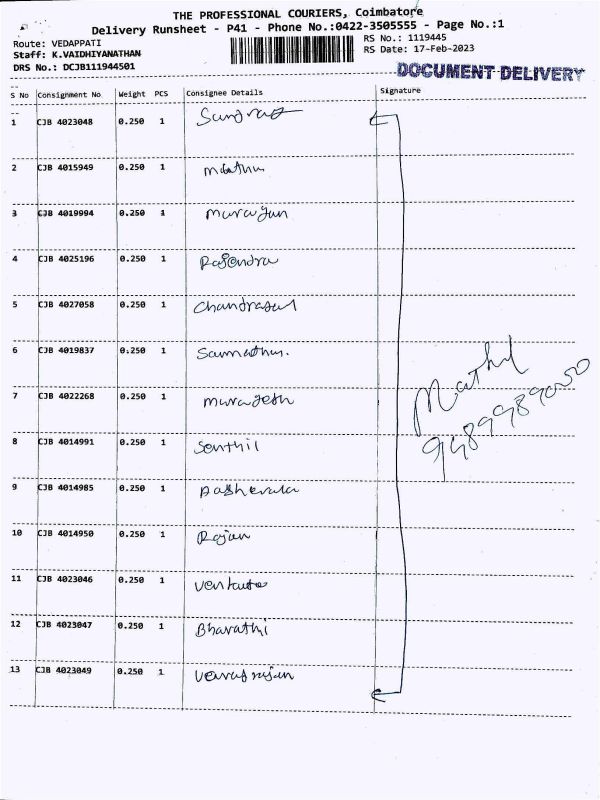 THE PROFESSIONAL COURIERS, Coimbatore
Delivery Runsheet - P41 - Phone No.:0422-3505555 - Page No.:1
Route: VEDAPPATI
RS No.: 1119445
Staff: K.VAIDHIYANATHAN
RS Date: 17-Feb-2023
DRS No.: DCJB111944501
DOCUMENT DELIVERY
S No Consignment No Weight PCS Consignee Details Signature
1 CJB 4023048 0.250 1
2 CJB 4015949 0.250 1
3 CJB 4019994 0.250 1 Murugan
4 CJB 4025196 0.250 1 Rajendra
5 CJB 4027058 0.250 1
6 CJB 4019837 0.250 1
7 CJB 4022268 0.250 1 Murugesh
8 CJB 4014991 0.250 1 Senthil
9 CJB 4014985 0.250 1
10 CJB 4014950 0.250 1 Rajan
11 CJB 4023046 0.250 1
12 CJB 4023047 0.250 1 Bharathi
13 CJB 4023049 0.250 1